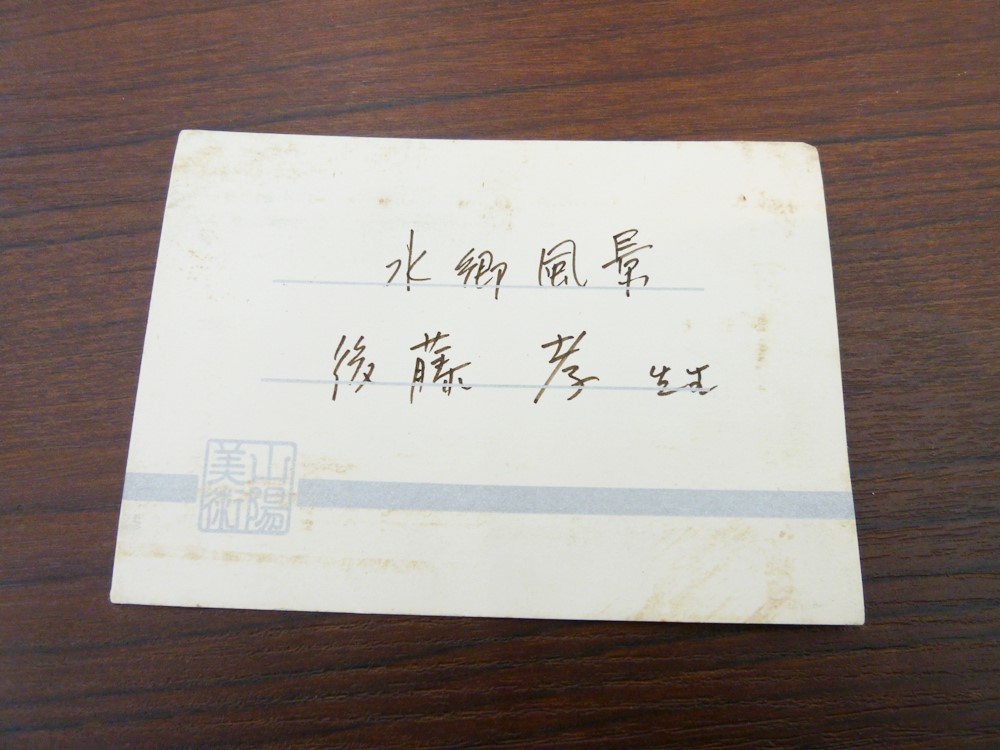 水郷風景
後藤 孝 先生
山陽美術